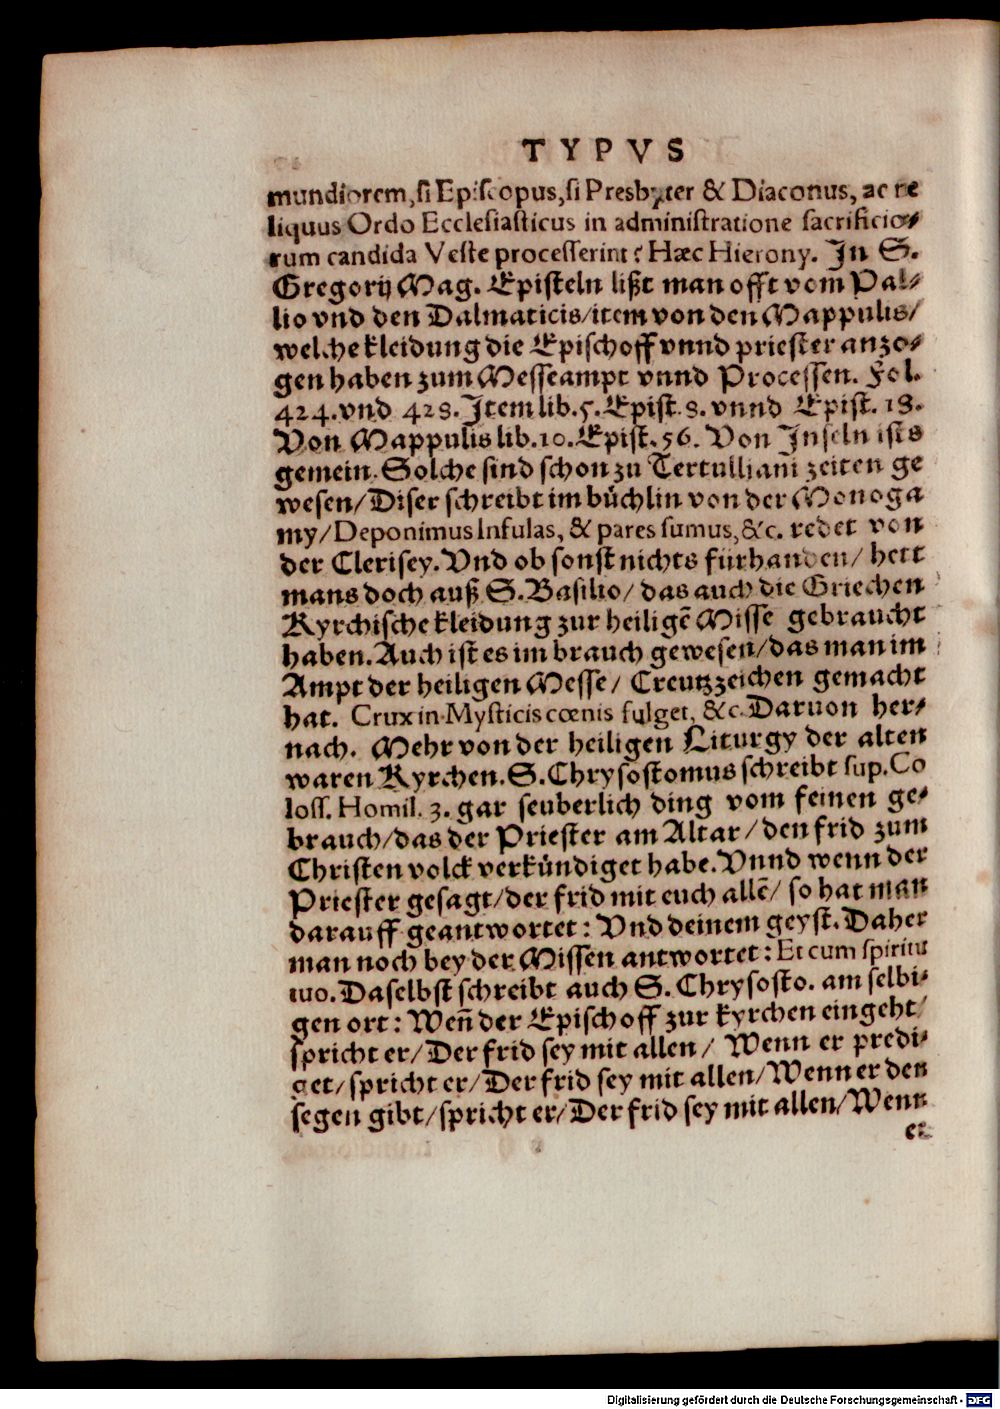 TYPVS
mundiorem,si Episcopus,si Presbyter & Diaconus, ac re
liquus Ordo Ecclesiasticus in administratione sacrificio⸗
rum candida Veste processerint? Hæc Hierony. In S.
Gregorij Mag. Episteln lißt man offt vom Pal⸗
lio vnd den Dalmaticis/item von den Mappulis/
welche kleidung die Epischoff vnnd priester anzo⸗
gen haben zum Messeampt vnnd Processen. Fol.
424.vnd 428.Item lib.5.Epist.8.vnnd Epist.18.
Von Mappulis lib.10.Epist.56.Von Inseln ists
gemein.Solche sind schon zu Tertulliani zeiten ge
wesen/Diser schreibt im bůchlin von der Monoga
my/Deponimus Infulas, & pares sumus,&c. redet von
der Clerisey.Vnd ob sonst nichts fürhanden/ hett
mans doch auß S.Basilio/das auch die Griechen
Kyrchische kleidung zur heiligẽ Misse gebraucht
haben.Auch ist es im brauch gewesen/das man im
Ampt der heiligen Messe/ Creutzzeichen gemacht
hat. Crux in Mysticis cœnis fulget, &c.Daruon her⸗
nach. Mehr von der heiligen Liturgy der alten
waren Kyrchen.S.Chrysostomus schreibt sup.Co
loss. Homil. 3. gar seuberlich ding vom feinen ge⸗
brauch/das der Priester am Altar/den frid zum
Christen volck verkündiget habe.Vnnd wenn der
Priester gesagt/der frid mit euch allẽ/ so hat man
darauff geantwortet: Vnd deinem geyst.Daher
man noch bey der Missen antwortet: Et cum spiritu
tuo.Daselbst schreibt auch S.Chrysosto. am selbi⸗
gen ort: Wen̄ der Epischoff zur kyrchen eingeht/
spricht er/Der frid sey mit allen/ Wenn er predi⸗
get/spricht er/Der frid sey mit allen/Wenn er den
segen gibt/spricht er/Der frid sey mit allen/Wenn
er
Digitalisierung gefördert durch die Deutsche Forschungsgemeinschaft - DFG